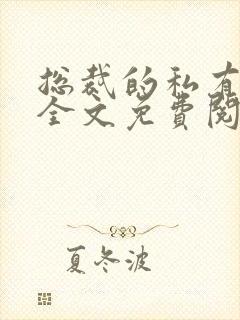 总裁的私有
全文免費閱
夏冬波